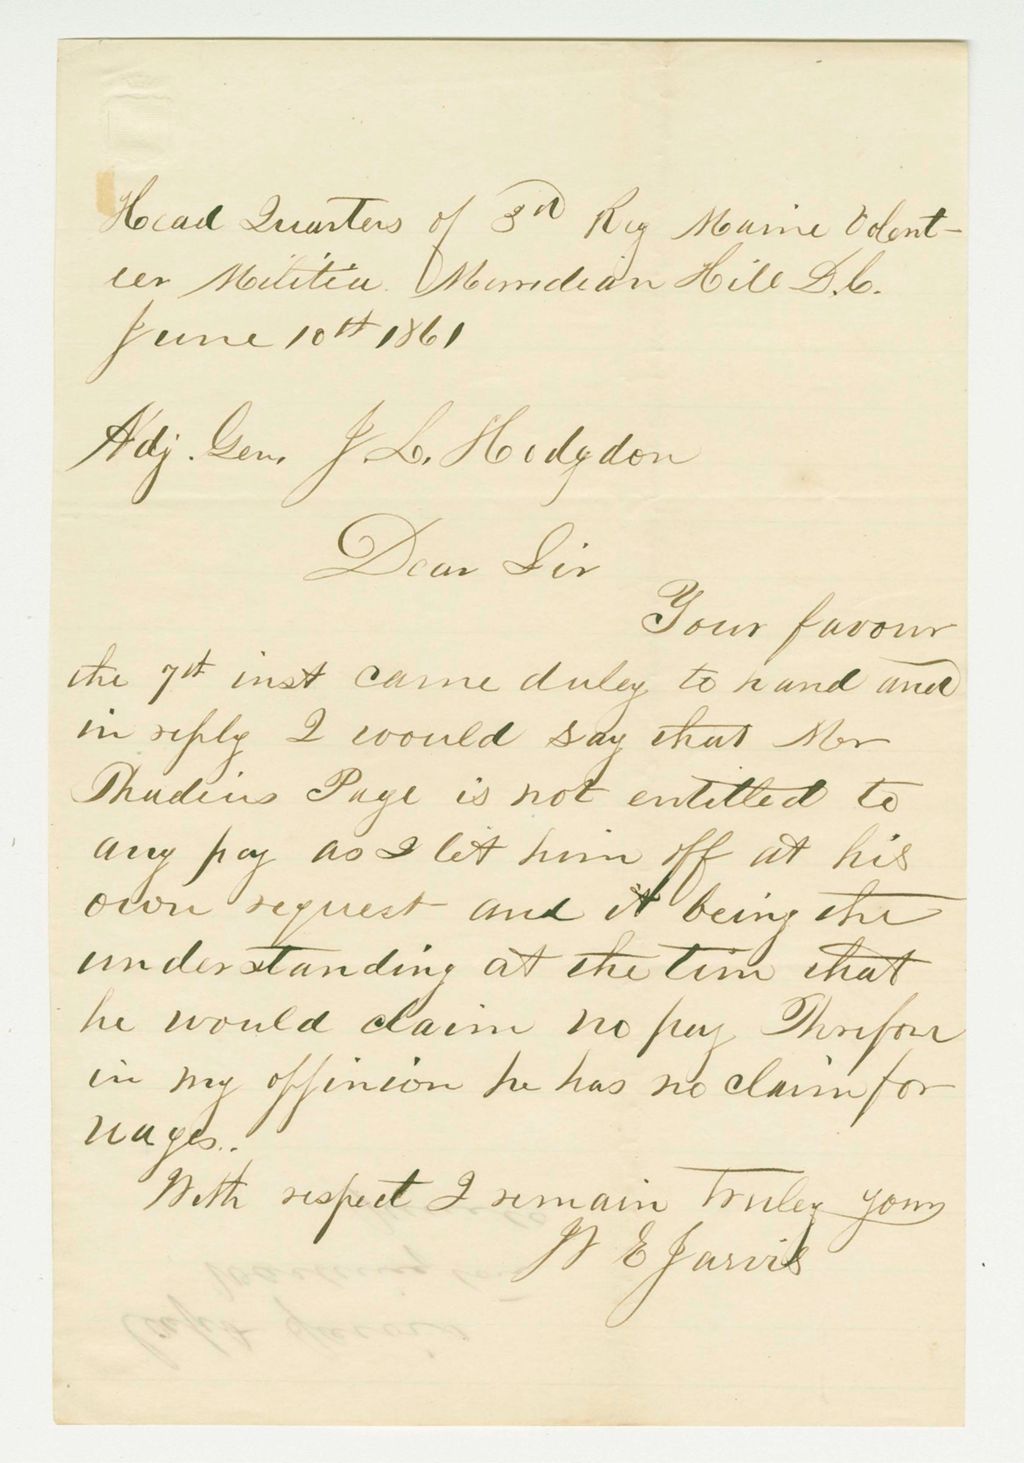 Head Quarters of 3rd Reg Maine Volent-
eer Militia Merredian Hill D.C.
June 10th 1861
Adj. Gen. J. L. Hodgdon
Dear Sir
Your favour
the 7th inst came duley to hand and
in reply I would say that Mr
Thadeus Page is not entitled to
any pay as I let him off at his
own request and it being the
understanding at the tim that
he would claim no pay Threfour
in my offinion he has no claim for
wages..
With respect I remain truley yours
W E Jarvis